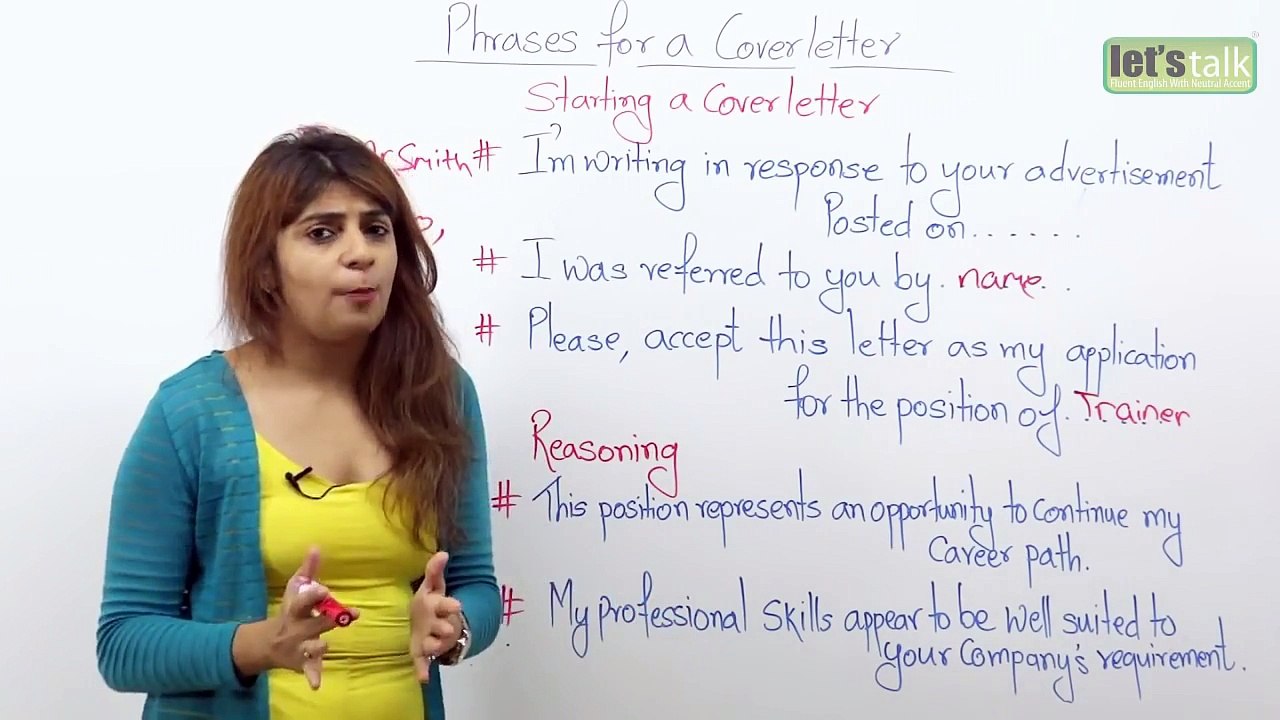 Phrases for a Cover letter
let's talk
®
Fluent English With Neutral Accent
Starting a Cover letter
Smith # I'm writing in response to your advertisement
Posted on......
# I was referred to you by. name. .
# Please, accept this letter as my application
for the position of. Trainer
Reasoning
# This position represents an opportunity to continue my
Career path.
# My professional skills appear to be well suited to
your Company's requirement.